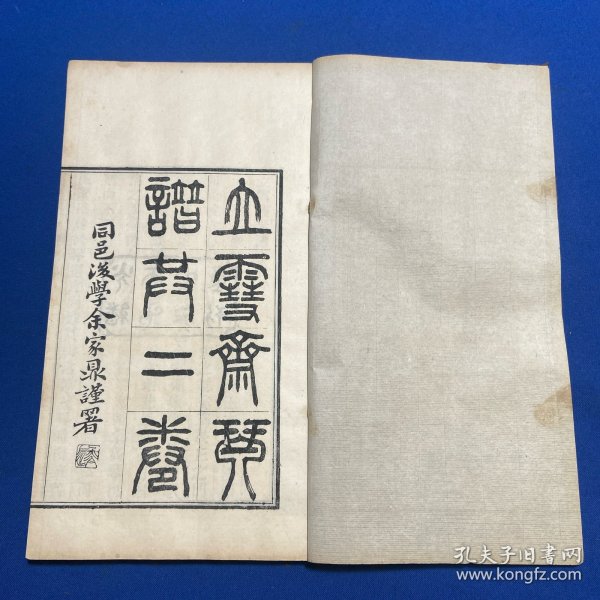 立雪齋琴
譜共二卷
同邑後學余家鼎謹署
孔夫子旧书网
www.kongfz.com